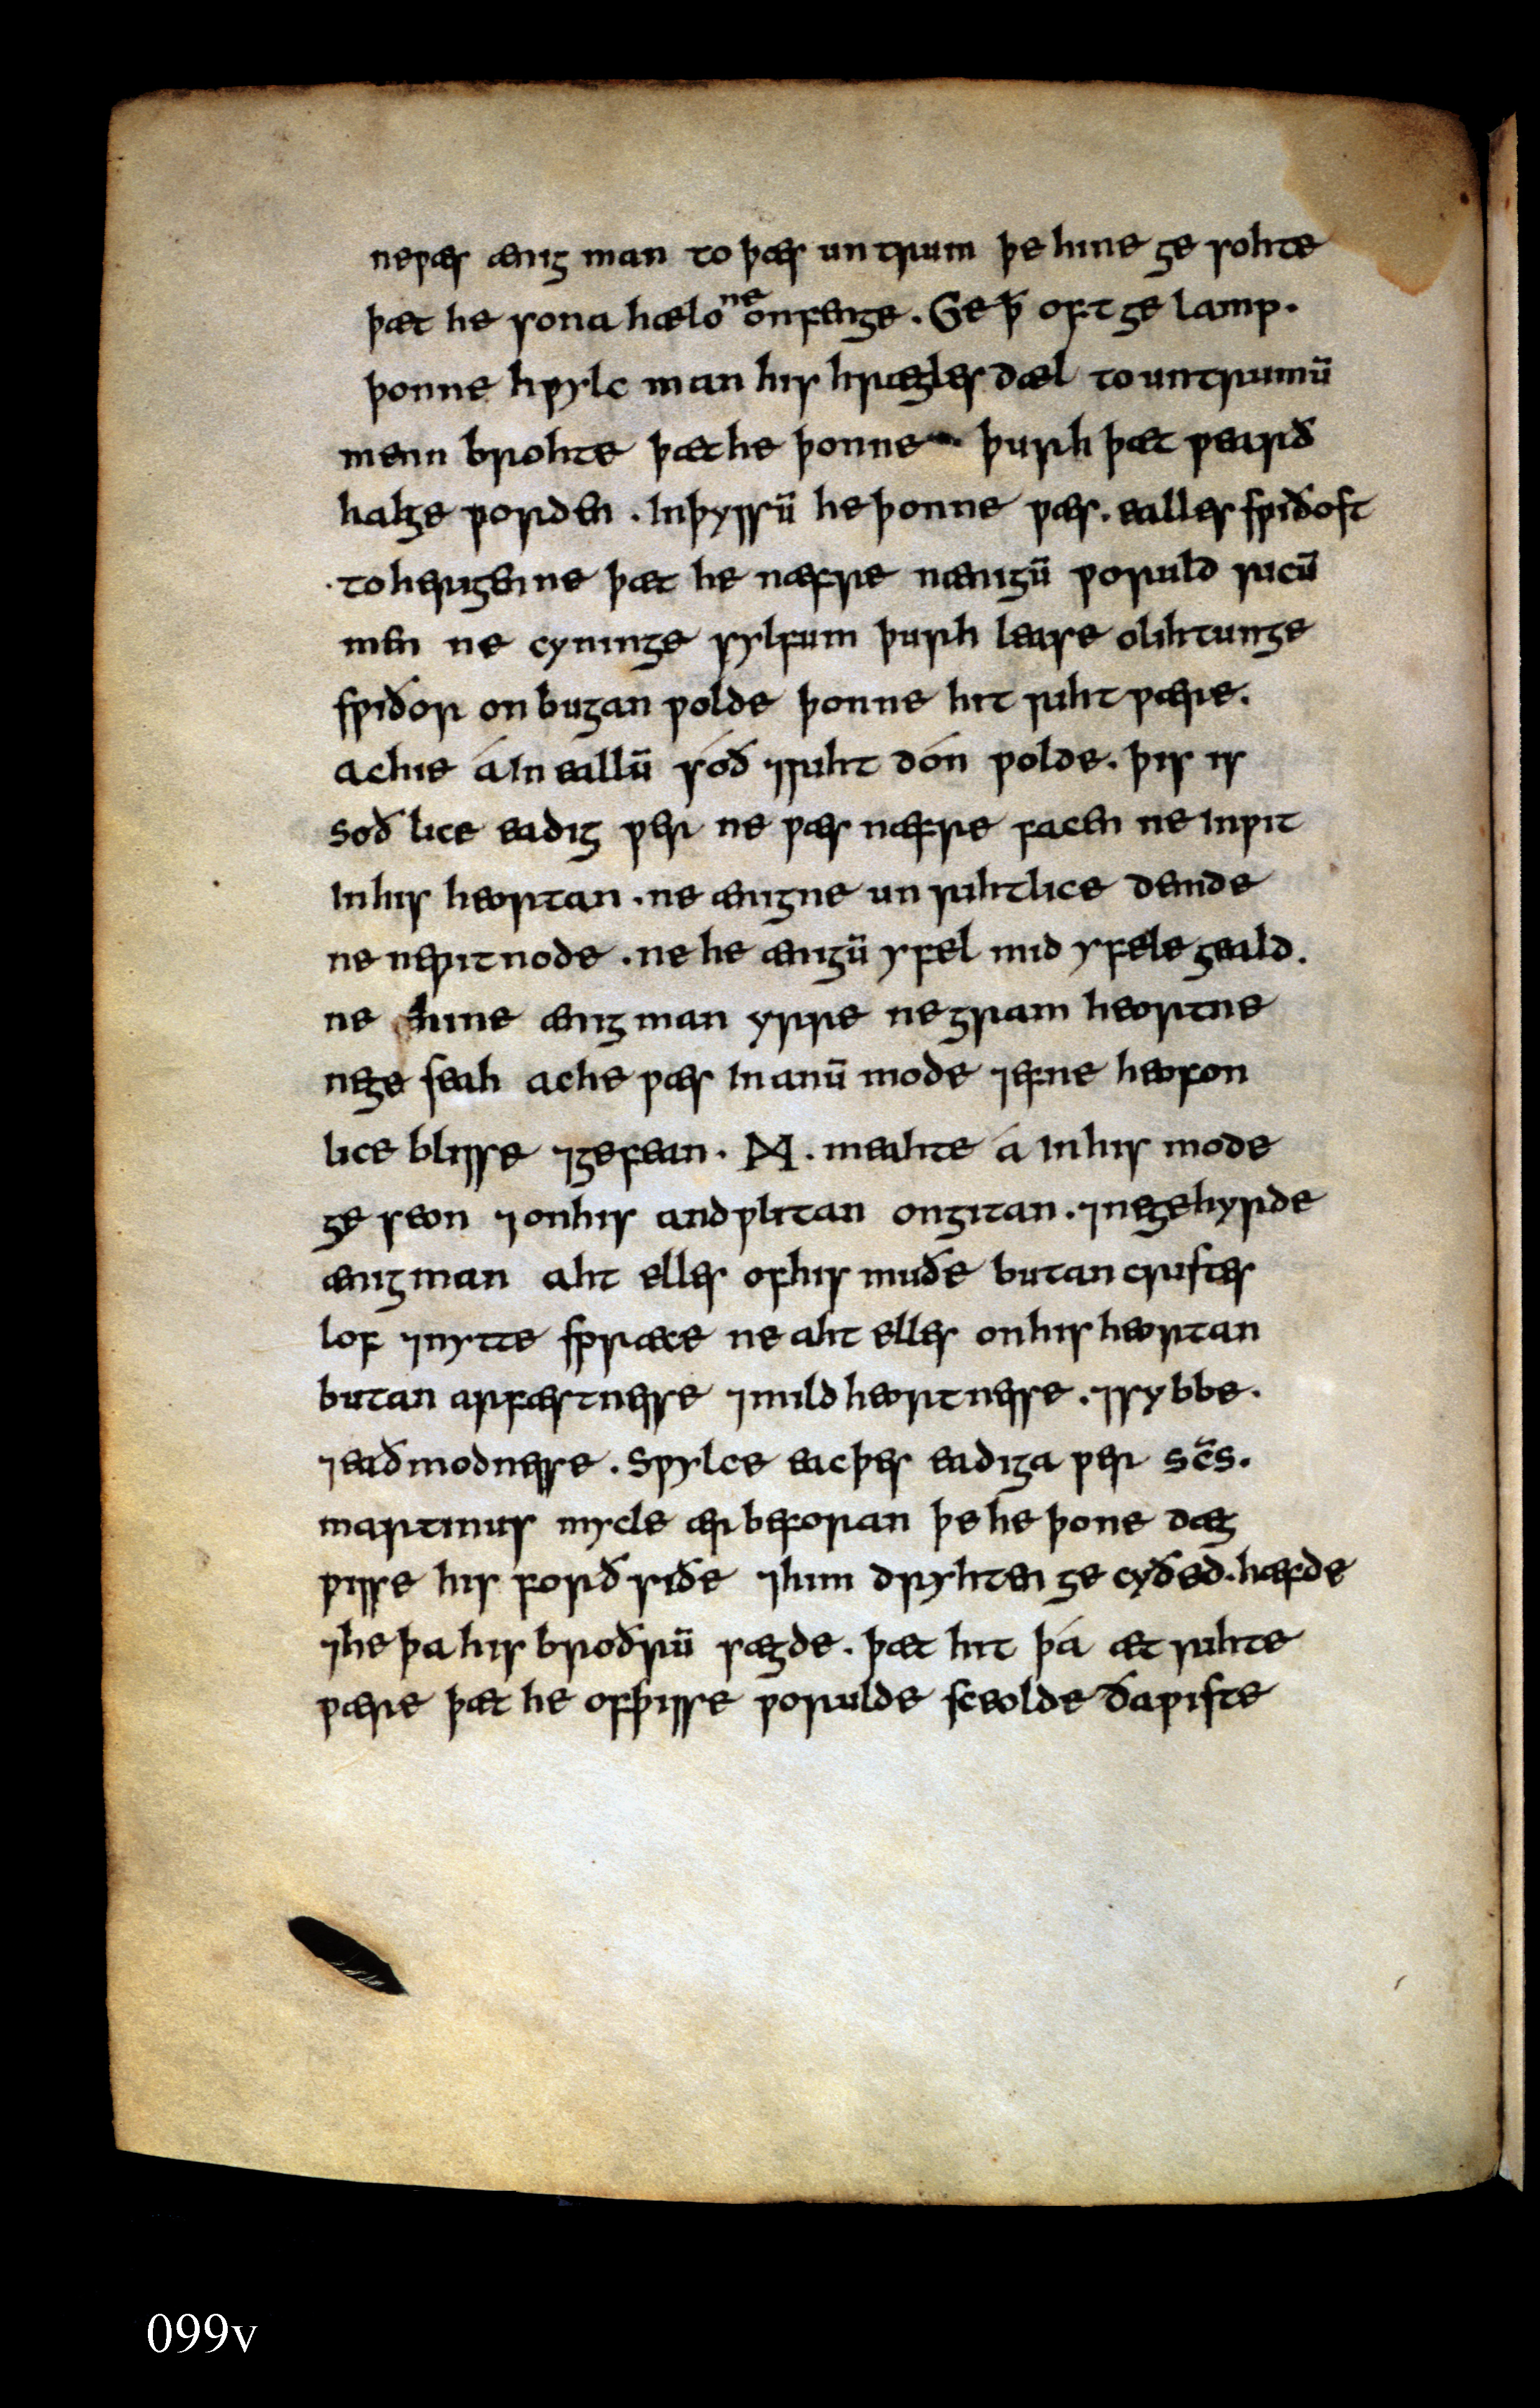 ne ƿæs ænig man to þæs untrum þe hine ge sohte
þæt he sona hælo ne onfenge. Ge ꝥ oft ge lamp.
þonne hƿylc man his hrægles dæl to untrumū
menn brohte þæt he þonne þurh þæt ƿearð
halge ƿorden. In þyssū he þonne ƿæs. ealles sƿiðost
to hergenne þæt he næfre nænigū ƿoruld ricū
men ne cyninge sylfum þurh lease olihtunge
sƿiðor onbugan ƿolde þonne hit riht ƿære.
ac hie á In eallū sóð ⁊riht dón ƿolde. þis is
soð lice eadig ƿer ne ƿæs næfre facen ne Inƿit
In his heortan. ne ænigne un rihtlice demde
ne ne ƿitnode. ne he ænigū yfel mid yfele geald.
ne hine ænig man yrre ne gram heortne
ne ge seah ac he ƿæs In anū mode ⁊efne heofon
lice blisse ⁊gefean. ᛗ. meahte á In his mode
ge seon ⁊on his andƿlitan ongitan. ⁊ne gehyrde
ænig man aht elles of his muðe butan cristes
lof ⁊nytte sprǣce ne aht elles on his heortan
butan arfæstnesse ⁊mildheortnesse. ⁊sybbe.
⁊eaðmodnesse. Sƿylce eac þes eadiga ƿer sc̄s.
martinus mycle ær beforan þe he þone dæg
ƿisse his forð siðe ⁊him dryhten ge cyðed. hæfde
⁊he þa his broðrū sægde. þæt hit þá æt rihte
ƿære þæt he of þisse ƿorulde sceolde ða ƿiste
099v